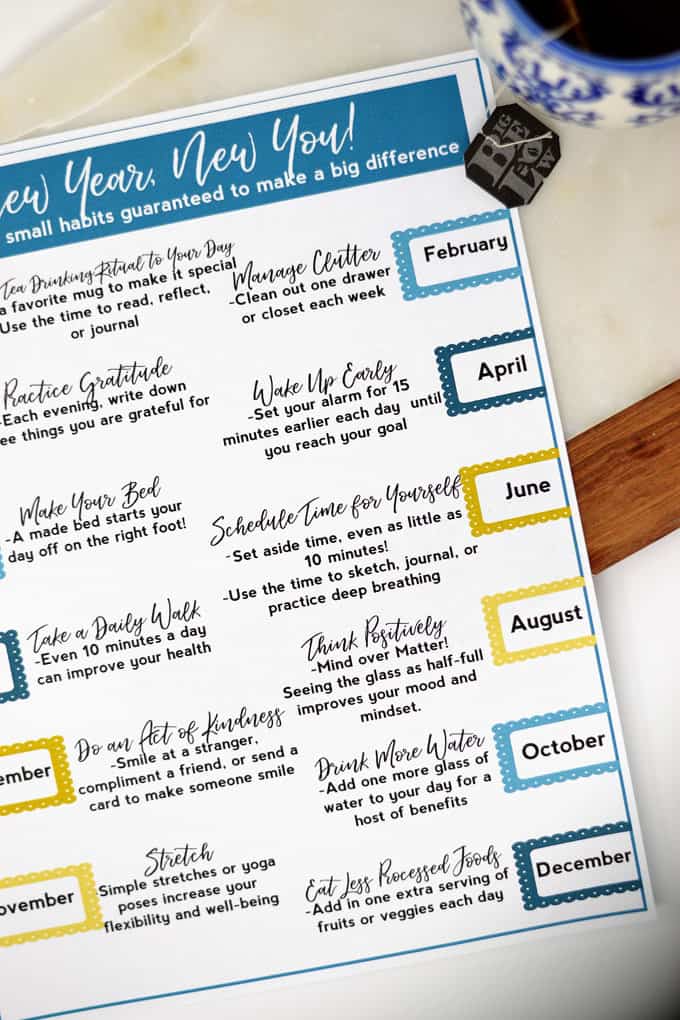 ew Year, New You!
small habits guaranteed to make a big difference
BIG
ELOW
Tea Drinking Ritual to Your Day
a favorite mug to make it special
Use the time to read, reflect,
or journal
Manage Clutter
-Clean out one drawer
or closet each week
February
Practice Gratitude
-Each evening, write down
ee things you are grateful for
Wake Up Early
-Set your alarm for 15
minutes earlier each day until
you reach your goal
April
Make Your Bed
-A made bed starts your
day off on the right foot!
Schedule Time for Yourself
-Set aside time, even as little as
10 minutes!
-Use the time to sketch, journal, or
practice deep breathing
June
Take a Daily Walk
-Even 10 minutes a day
can improve your health
Think Positively
-Mind over Matter!
Seeing the glass as half-full
improves your mood and
mindset.
August
ember
Do an Act of Kindness
-Smile at a stranger,
compliment a friend, or send a
card to make someone smile
Drink More Water
-Add one more glass of
water to your day for a
host of benefits
October
ovember
Stretch
Simple stretches or yoga
poses increase your
flexibility and well-being
Eat Less Processed Foods
-Add in one extra serving of
fruits or veggies each day
December